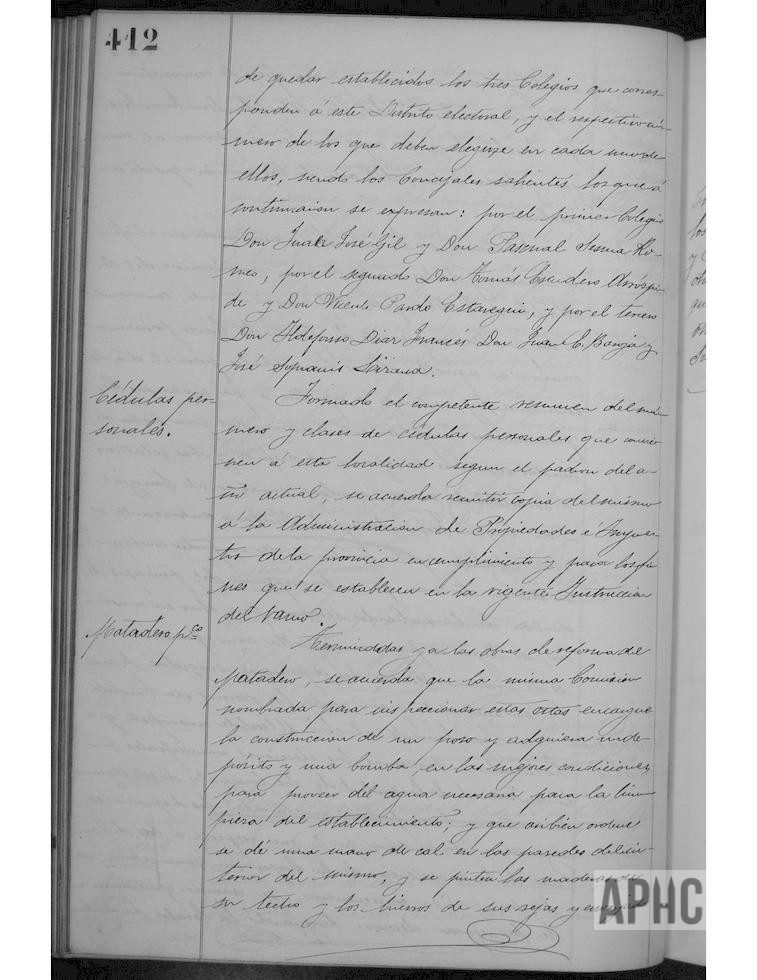 412
de quedar establecidos los tres Colegios que corres-
ponden á este Distrito electoral, y el respectivo nú-
mero de los que deben elegirse en cada uno de
ellos, siendo los Concejales salientes los que á
continuacion se expresan: por el primer Colegio
Don Juan José Gil y Don Pascual Sesma
por el segundo Don Tomás Escudero
de y Don Vicente Pardo y por el tercero
Don Ildefonso Diaz Francés Don Juan C. Baroja y
José
Cédulas per-
sonales.
Formado el competente resumen del nú-
mero y clases de cédulas personales que convie-
nen á esta localidad segun el padron del a-
ño actual, se acuerda remitir copia del mismo
á la Administracion de Propiedades é Impues-
tos de la provincia en cumplimiento y para los fi-
nes que se establecen en la vigente Instruccion
del ramo.
Matadero pco
Terminadas ya las obras de reforma del
matadero, se acuerda que la misma Comision
nombrada para inspeccionar estas obras encargue
la construccion de un pozo y adquiera un de-
pósito y una bomba, en las mejores condiciones
para proveer del agua necesaria para la lim-
pieza del establecimiento; y que asi bien ordene
se dé una mano de cal en las paredes del in-
terior del mismo, y se pinten las maderas de
su techo y los hierros de sus rejas y
APHC